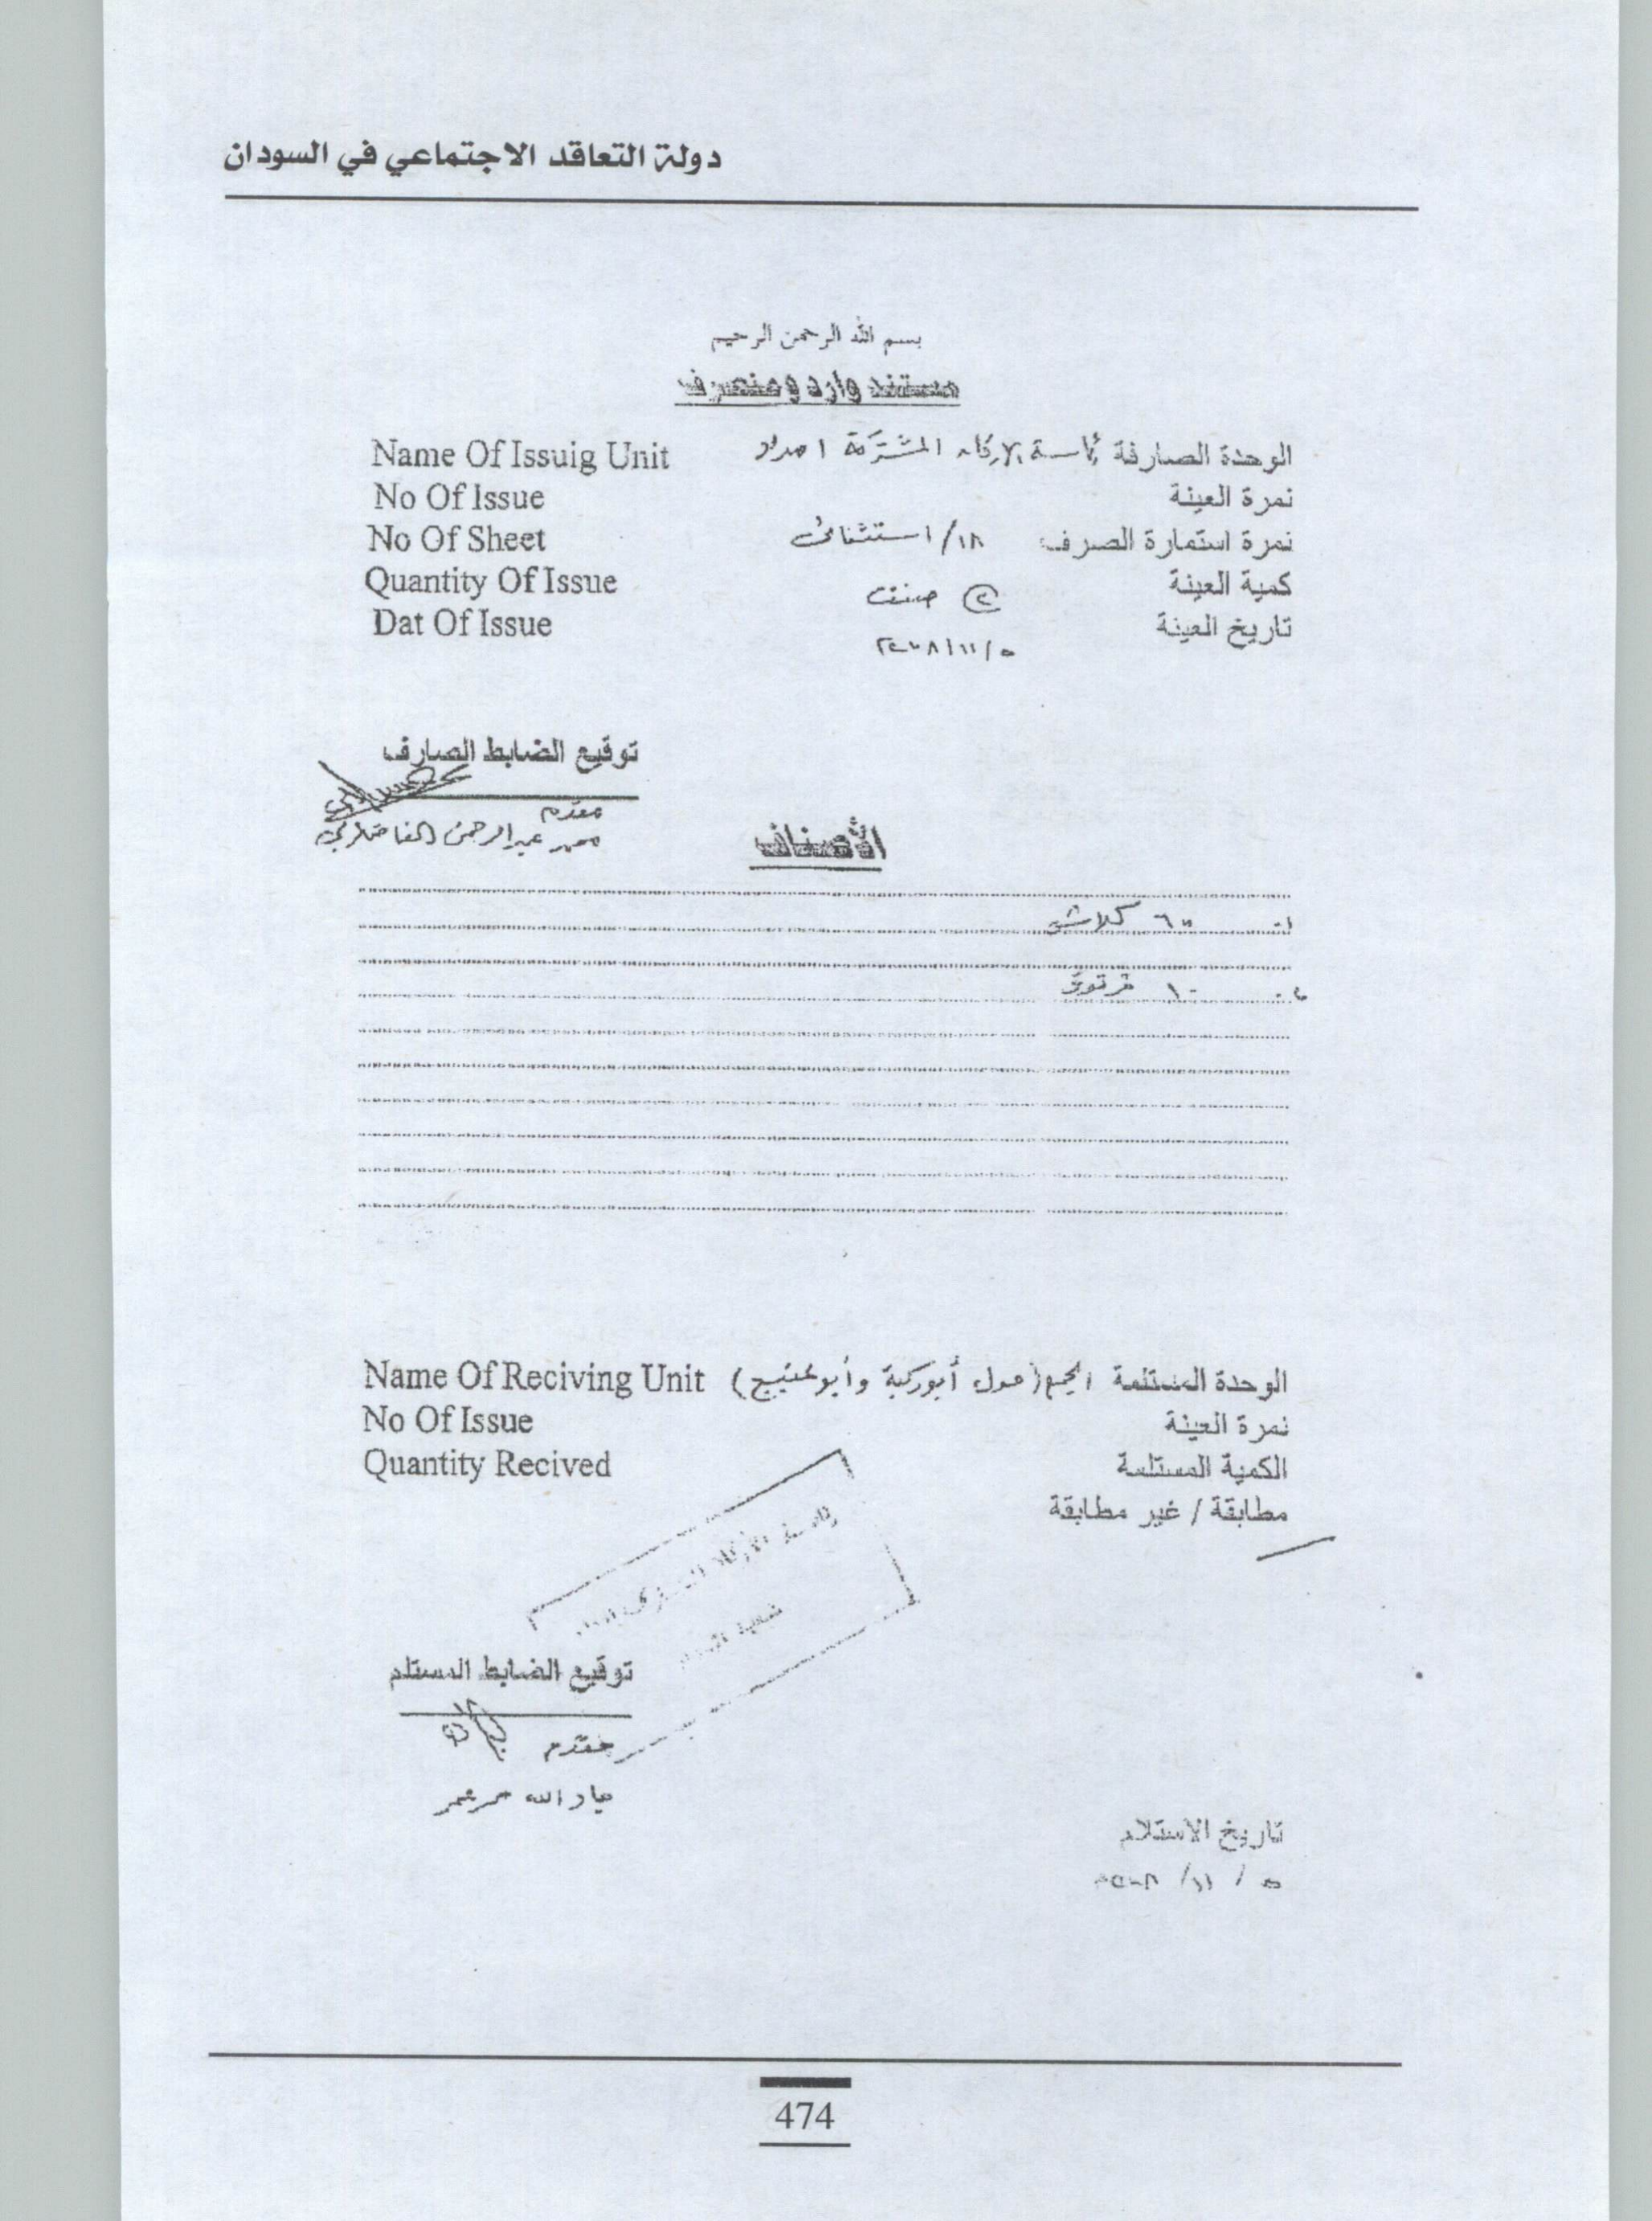 دولة التعاقد الاجتماعي في السودان
بسم الله الرحمن الرحيم
مستند وارد ومنصرف
Name Of Issuig Unit الوحدة الصارفة رئاسة الاركان المشتركة امداد
No Of Issue نمرة العينة
No Of Sheet نمرة استمارة الصرف ١٨/ استثنائى
Quantity Of Issue كمية العينة ② صنف
Dat Of Issue تاريخ العينة ٥/١١/٢٠٠٨
توقيع الضابط الصارف
مقدم
محمد عبدالرحمن
الأصناف
١- كلاش
٢- ١٠ قرنوف
Name Of Reciving Unit الوحدة المستلمة (حول أبوركبة وأبوعنييج)
No Of Issue نمرة العينة
Quantity Recived الكمية المستلمة
مطابقة / غير مطابقة
توقيع الضابط المستلم
مقدم
جار الله عمر
تاريخ الاستلام
٥ / ١١/ ٢٠٠٨
474